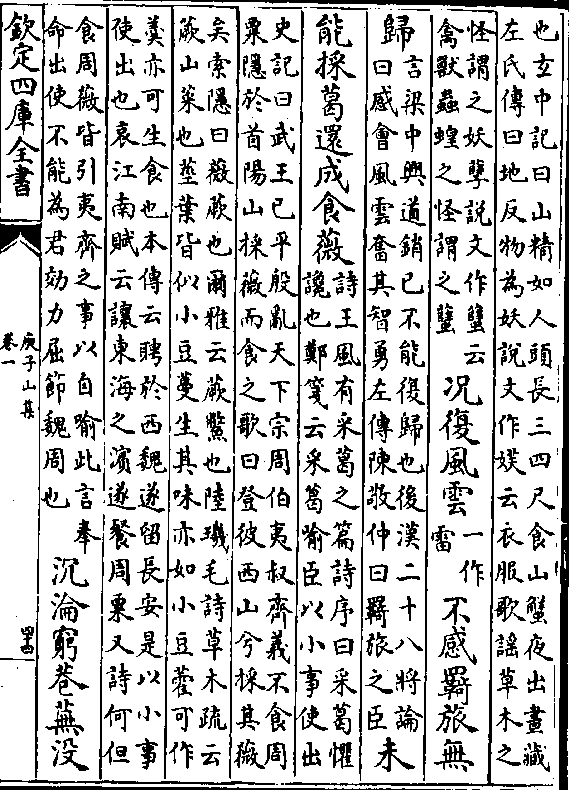 也玄中記曰山精如人頭長三四尺食山蟹夜出晝藏
左氏傳曰地反物為妖說文作䄏云衣服歌謡草木之
怪謂之妖孽說文作蠥云
禽獸蟲蝗之怪謂之蠥
况復風雲
一作
雷
不感羇旅無
歸
言梁中興道銷已不能復歸也後漢二十八將論
曰感會風雲奮其智勇左傳陳敬仲曰羇旅之臣
未
能採葛還成食薇
詩王風有采葛之篇詩序曰采葛懼
讒也鄭箋云采葛喻臣以小事使出
史記曰武王已平殷亂天下宗周伯夷叔齊義不食周
粟隱於首陽山採薇而食之歌曰登彼西山兮採其薇
矣索隱曰薇蕨也爾雅云蕨虌也陸璣毛詩草木疏云
蕨山菜也莖葉皆似小豆蔓生其味亦如小豆藿可作
羮亦可生食也本傳云聘於西魏遂留長安是以小事
使出也哀江南賦云讓東海之濱遂餐周粟又詩何但
食周薇皆引夷齊之事以自喻此言奉
命出使不能為君効力屈節魏周也
沉淪窮巷蕪没
欽定四庫全書
庾子山集
卷一